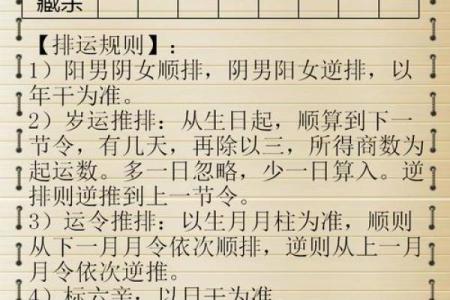 藏余
【排运规则】：
1）阳男阴女顺排，阴男阳女逆排，以
年干为准。
2）岁运推排：从生日起，顺算到下一
节令，有几天，再除以三，所得商数为
起运数。多一日忽略，少一日算入。逆
排则逆推到上一节令。
3）运令推排：以生月月柱为准，顺则
从下一月月令依次顺排，逆则从上一月
月令依次逆推。
4）标六亲：以日干为准